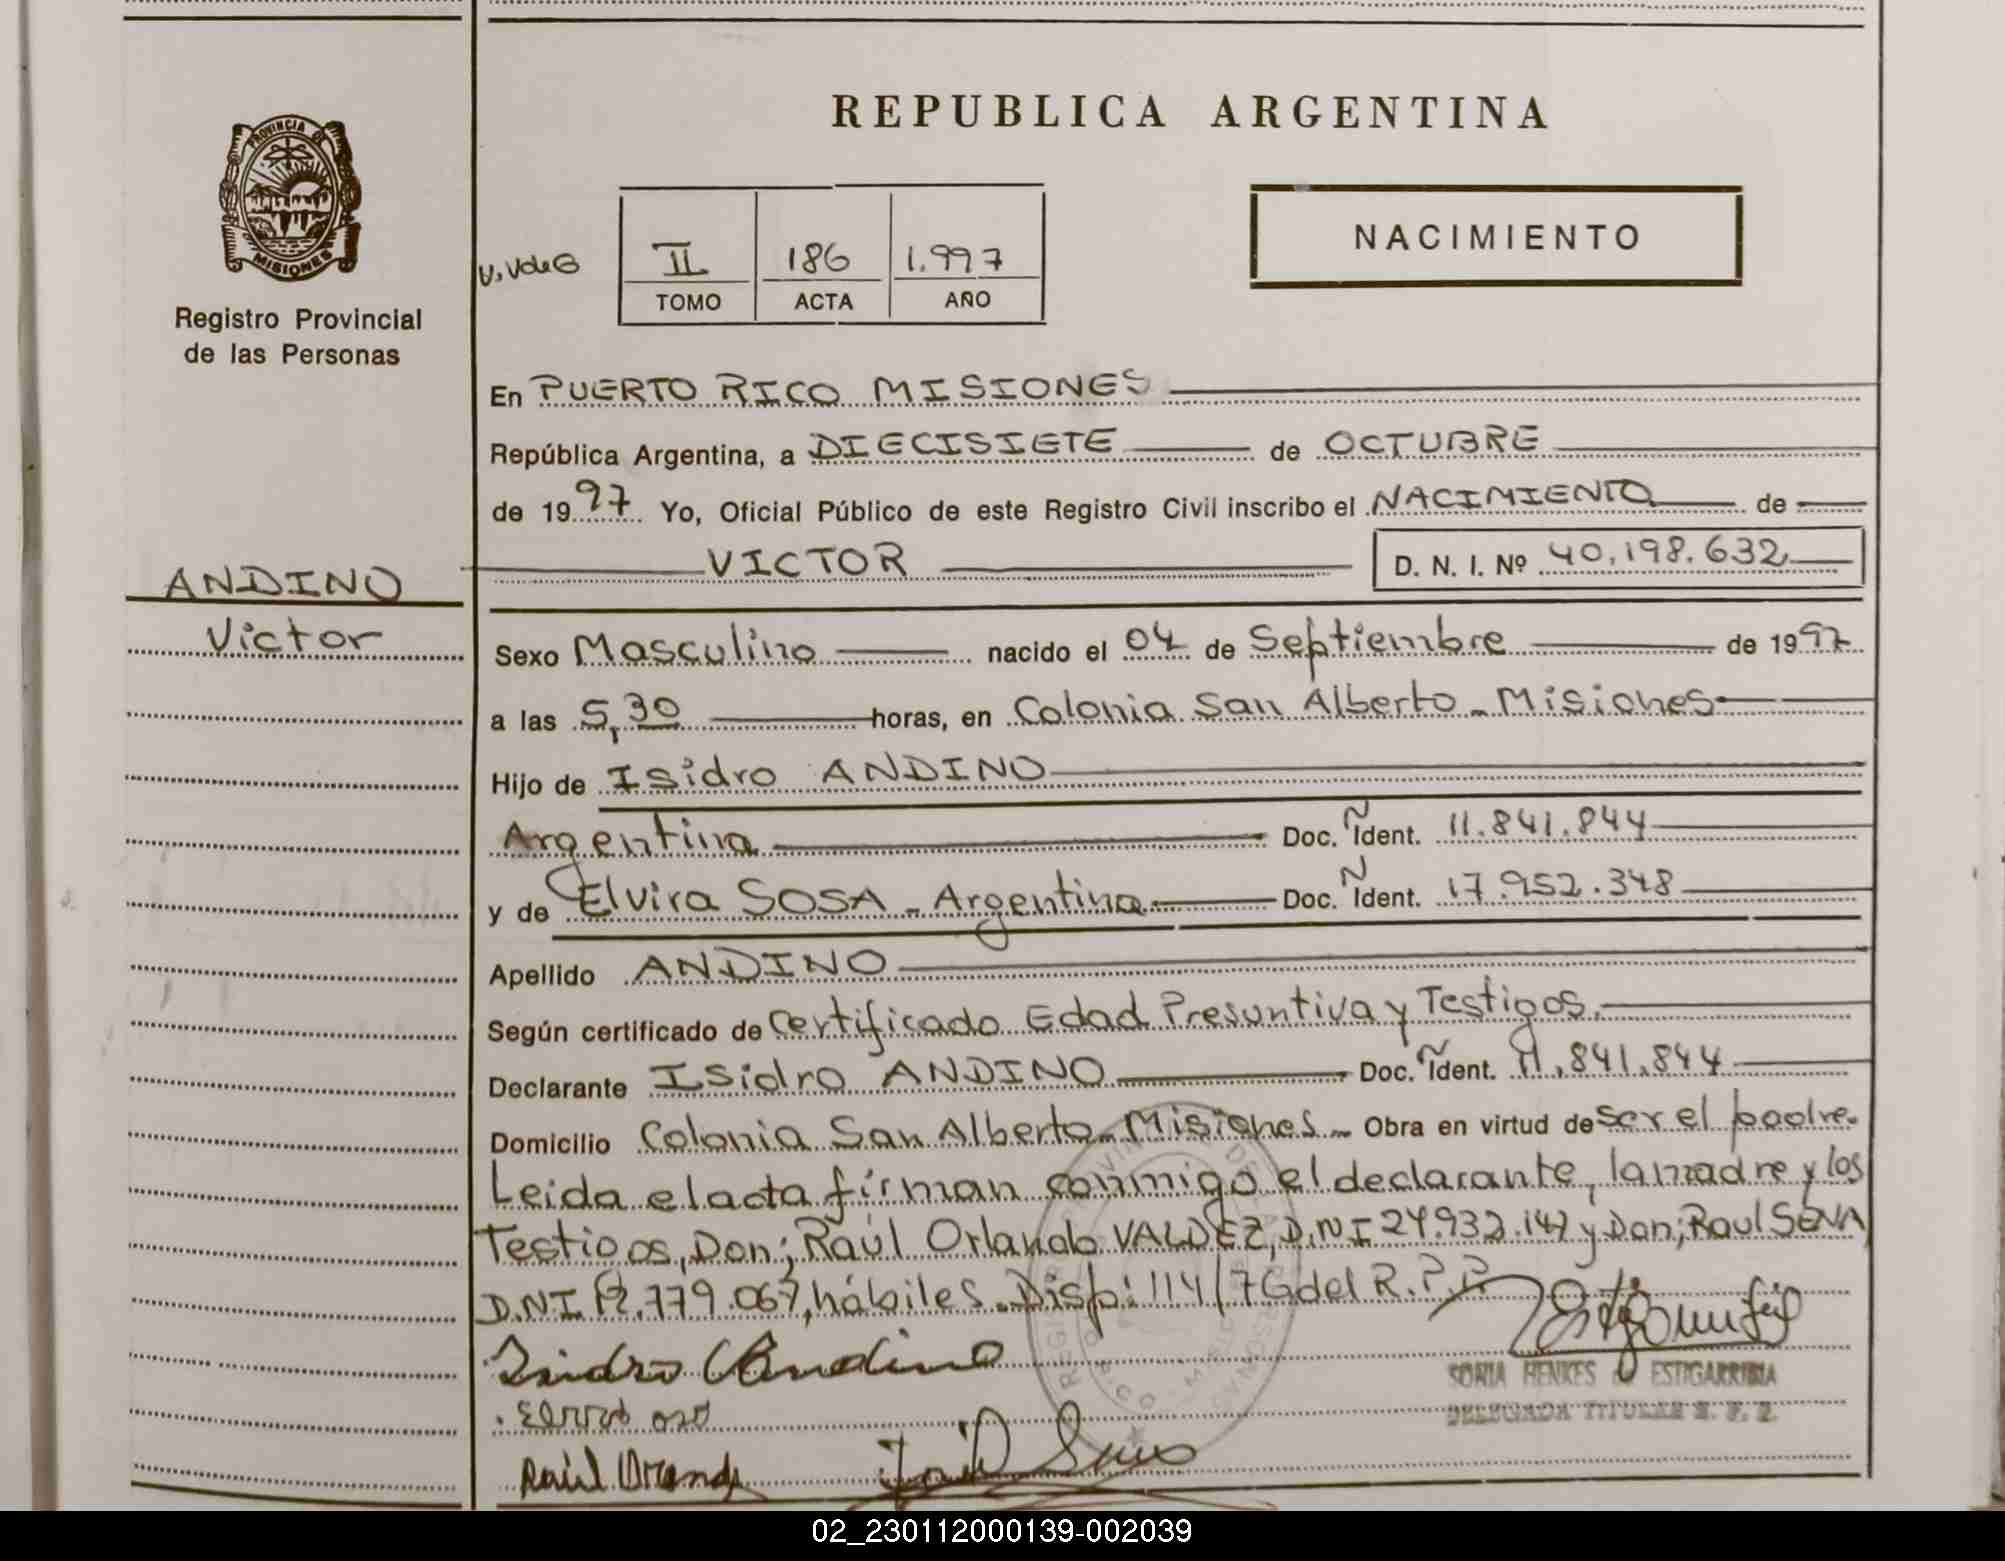 REPUBLICA ARGENTINA
PROVINCIA DE
MISIONES
Registro Provincial
de las Personas
NACIMIENTO
II 186 1.997
TOMO ACTA AÑO
En PUERTO RICO MISIONES
República Argentina, a DIECISIETE de OCTUBRE
de 1997 Yo, Oficial Público de este Registro Civil inscribo el NACIMIENTO de
VICTOR D. N. I. Nº 40.198.632
ANDINO
Victor
Sexo Masculino nacido el 04 de Septiembre de 1997
a las 5,30 horas, en Colonia San Alberto - Misiones
Hijo de Isidro ANDINO
Argentina Doc. Ñ Ident. 11.841.844
y de Elvira SOSA - Argentina Doc. N Ident. 17.952.348
Apellido ANDINO
Según certificado de Certificado Edad Presuntiva y Testigos.
Declarante Isidro ANDINO Doc. Ñ Ident. 11.841.844
Domicilio Colonia San Alberto - Misiones - Obra en virtud de ser el padre.
Leida el acta firman conmigo el declarante, la madre y los
Testigos, Don; Raúl Orlando VALDEZ, D.N.I 24.932.147 y Don; Raul SENA
D.N.I 12.779.067, hábiles. Disp: 114/76 del R.P.P.
Isidro Andino
SONIA HENKES de ESTIGARRIBIA
DELEGADA TITULAR R. P. P.
Raúl Orland
02_230112000139-002039